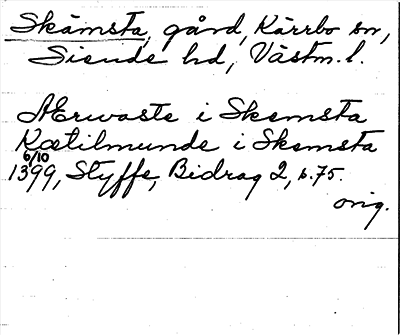 Skämsta, gård, Kärrbo sn,
Siende hd, Västm. l.
Ærwaste i Skemsta
Kætilmunde i Skemsta
6/10
1399, Styffe, Bidrag 2, s. 75.
orig.